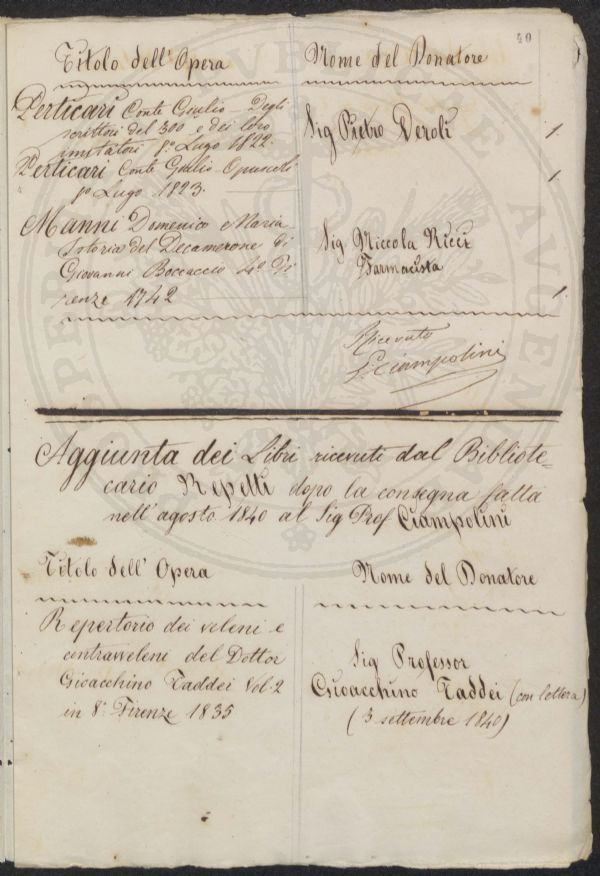 40
Titolo dell'Opera
Nome del Donatore
Perticari Conte Giulio Degli
scrittori del 300 e dei loro
imitatori 8° Lugo 1822
Sig Pietro Deroli
1.
Perticari Conte Giulio Opuscoli
8° Lugo 1823.
1.
Manni Domenico Maria
Istoria del Decamerone di
Giovanni Boccaccio 4° Fi
renze 1742
Sig Niccola Ricci
Farmacista
1.
Ricevuto
Ciampolini
Aggiunta dei Libri ricevuti dal Bibliote=
cario Repetti dopo la consegna fatta
nell'agosto 1840 al Sig Prof Ciampolini
Titolo dell'Opera
Nome del Donatore
Repertorio dei veleni e
contravveleni del Dottor
Gioacchino Taddei Vol. 2
in 8° Firenze 1835
Sig Professor
Gioacchino Taddei (con lettera)
(3 settembre 1840)